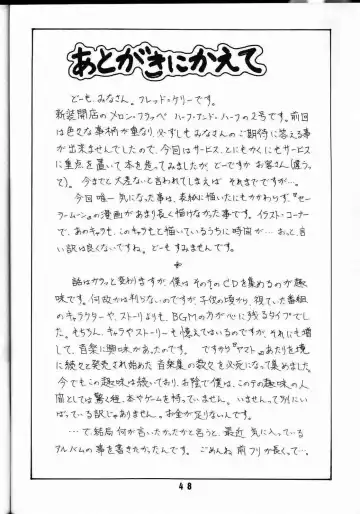 あとがきにかえて
どーも、みなさん。フレッド・ケリーです。
新装開店のメロン・フラッペ ハーフ・アンド・ハーフの2号です。前回
は色々な事柄が重なり、必ずしもみなさんのご期待に答える事
が出来ませんでしたので、今回はサービス、とにもかくにもサービス
に重点を置いて本を造ってみましたが、どーですか お客さん(違うっ
て)。今までと大差ないと言われてしまえば それまでですが…。
今回 唯一 気になった事は、表紙に描いたにもかかわらず、"セー
ラームーン"の漫画があまり長く描けなかった事です。イラスト・コーナー
で、あのキャラも、このキャラもと描いているうちに時間が… おっと、言
い訳は良くないですね。どーも すみませんです。
*
話はガラッと変わりますが、僕は そのその CDを集めるのが趣
味です。何故かは判らないのですが、子供の頃から、視ていた番組
のキャラクターや、ストーリよりも、BGMの方が心に残るタイプでし
た。もちろん、キャラやストーリーも憶えてはいるのですが、それにも増
して、音楽に興味があったのです。 ですから"ヤマト"あたりを境
に続々と発売され始めた 音楽集の数々を必死になって集めました。
今でもこの趣味は続いており、お陰で僕は、このテの趣味の人
間としては驚く程、本やゲームを持っていません。いませんって別にい
ばっている訳じゃありません。お金が足りないんです。
…で、結局 何が言いたかったかと言うと、最近 気に入っている
アルバムの事を書きたかったんです。ごめんね 前フリが長くって…。
48